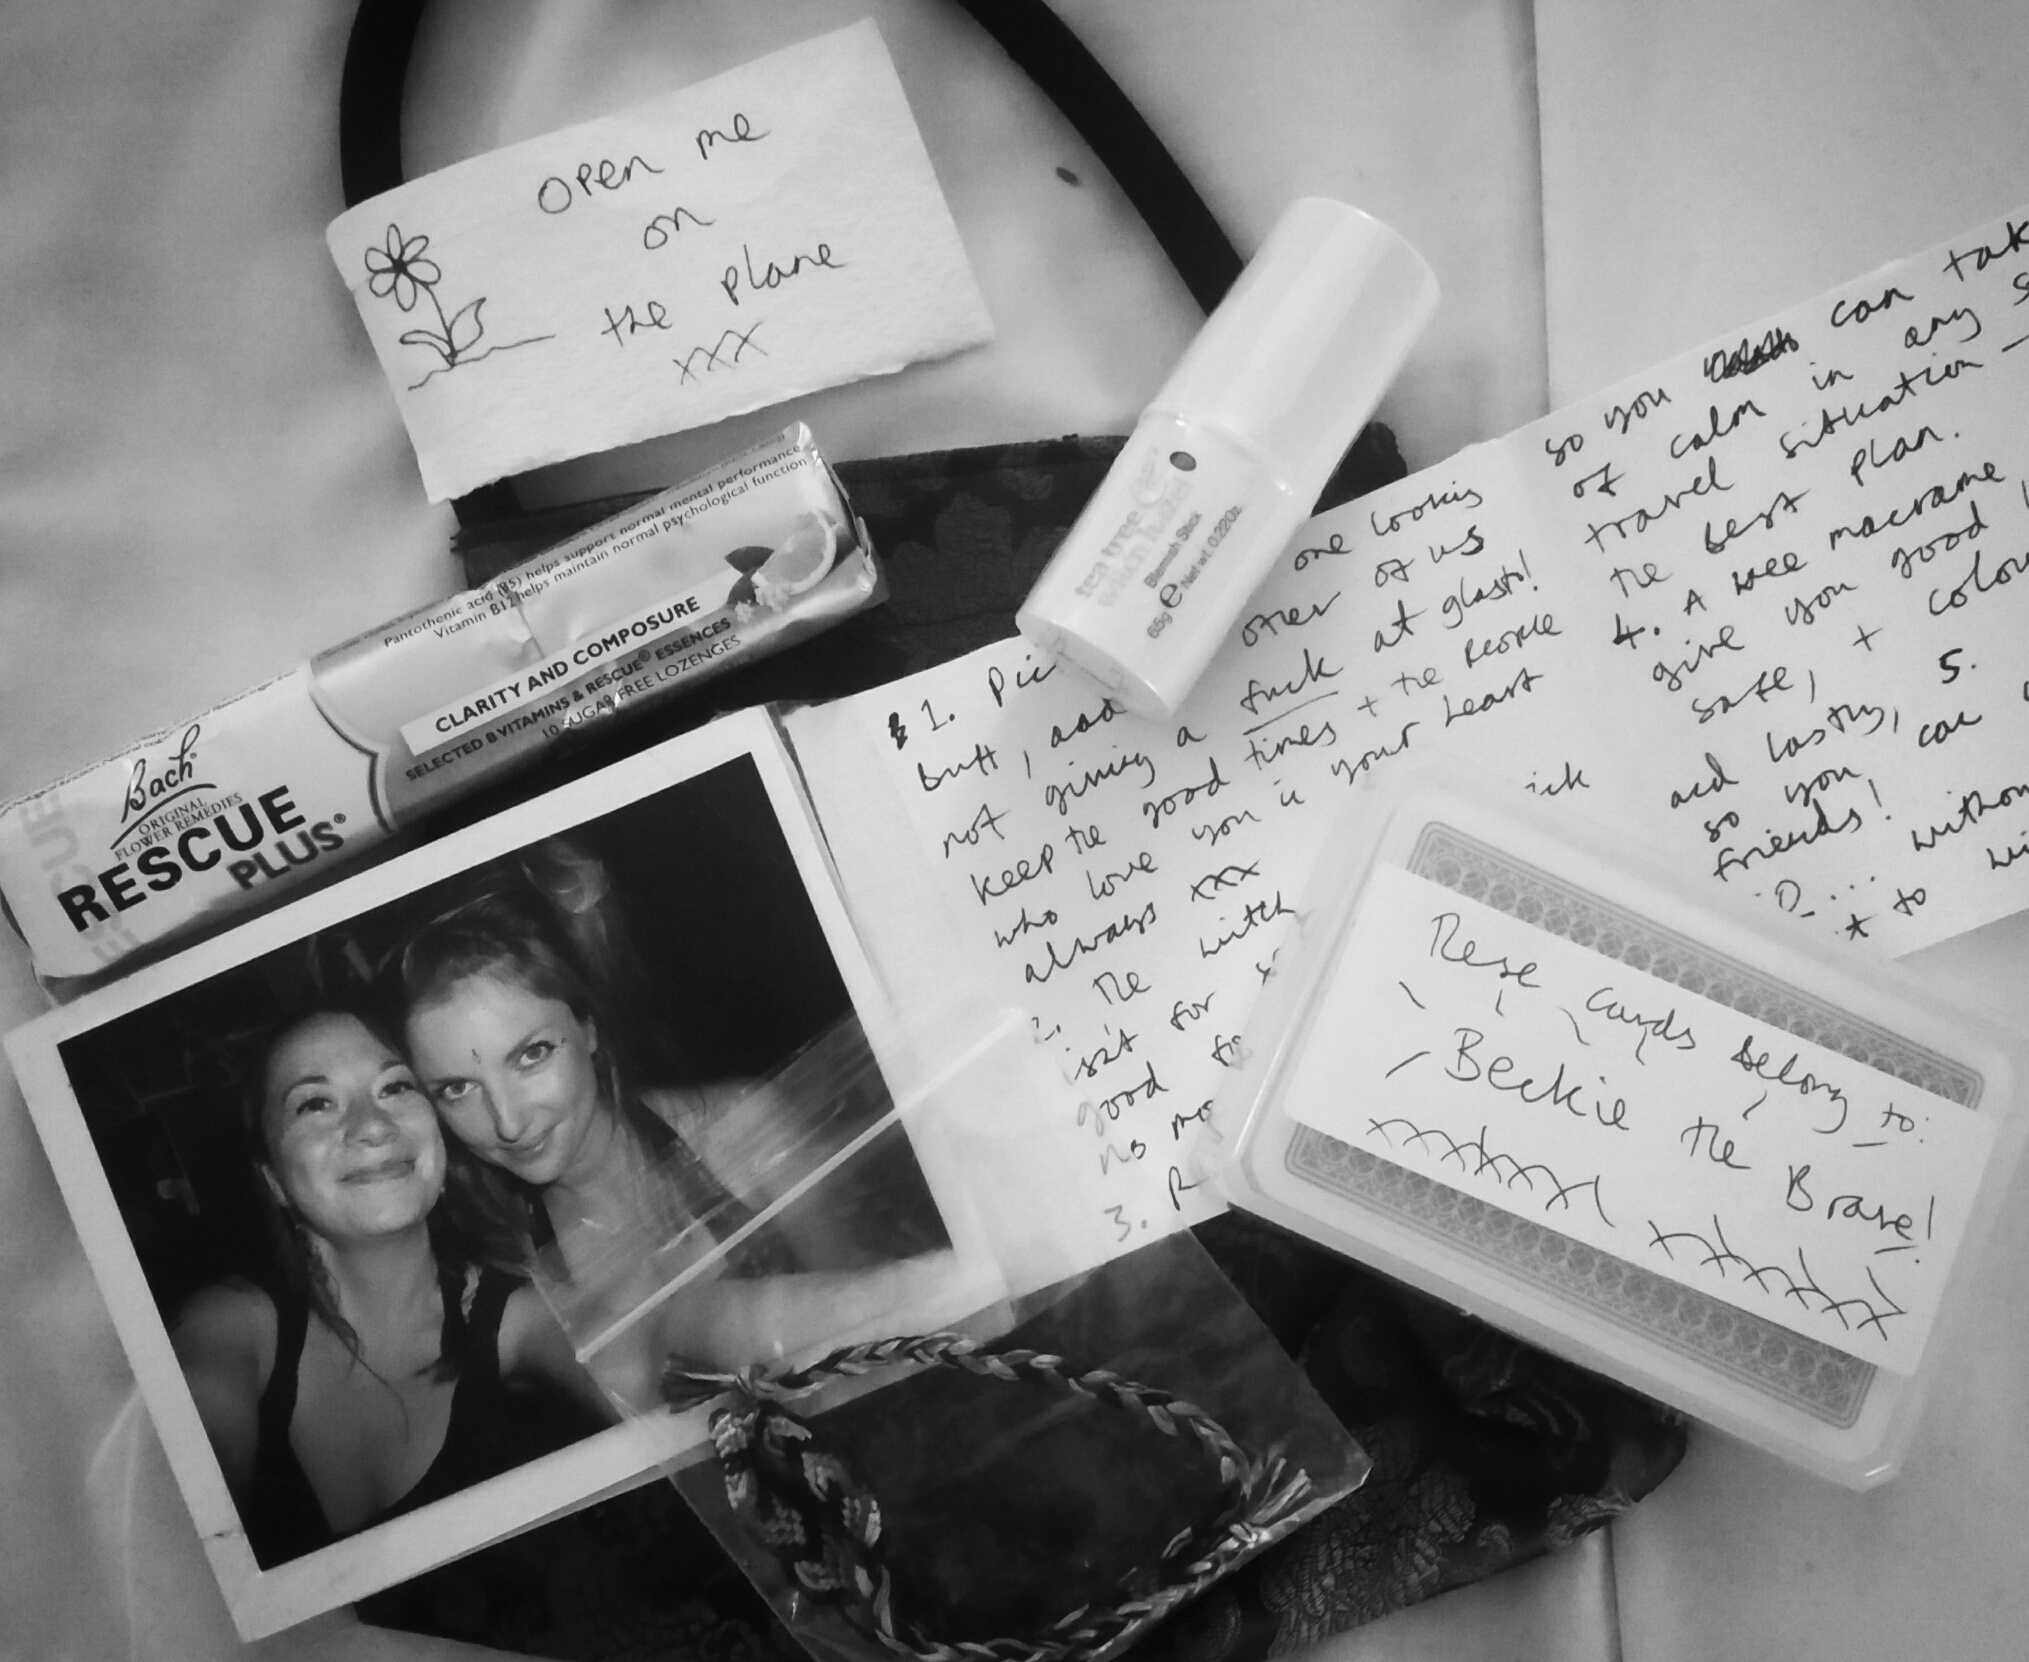 open me
on
the plane
xxx
Pantothenic acid (B5) helps support normal mental performance
Vitamin B12 helps maintain normal psychological function
CLARITY AND COMPOSURE
SELECTED B VITAMINS & RESCUE® ESSENCES
10 SUGAR FREE LOZENGES
Bach®
ORIGINAL
FLOWER REMEDIES
RESCUE
PLUS®
tea tree
witch hazel
Blemish Stick
65g e Net wt. 0.22oz
1. Pic one looking
butt, and other of us
not giving a fuck at glasto!
keep the good times + the people
who love you in your heart
always xxx
2. the witch
isn't for
good
no
3.
ick
so you can
of calm in any
travel situation –
the best plan.
4. A wee macrame
give you good
safe, +
and lastly, 5.
so you can
friends!
* to
These cards belong to:
Beckie the Brave!
xxxxxxx xxxxxxx